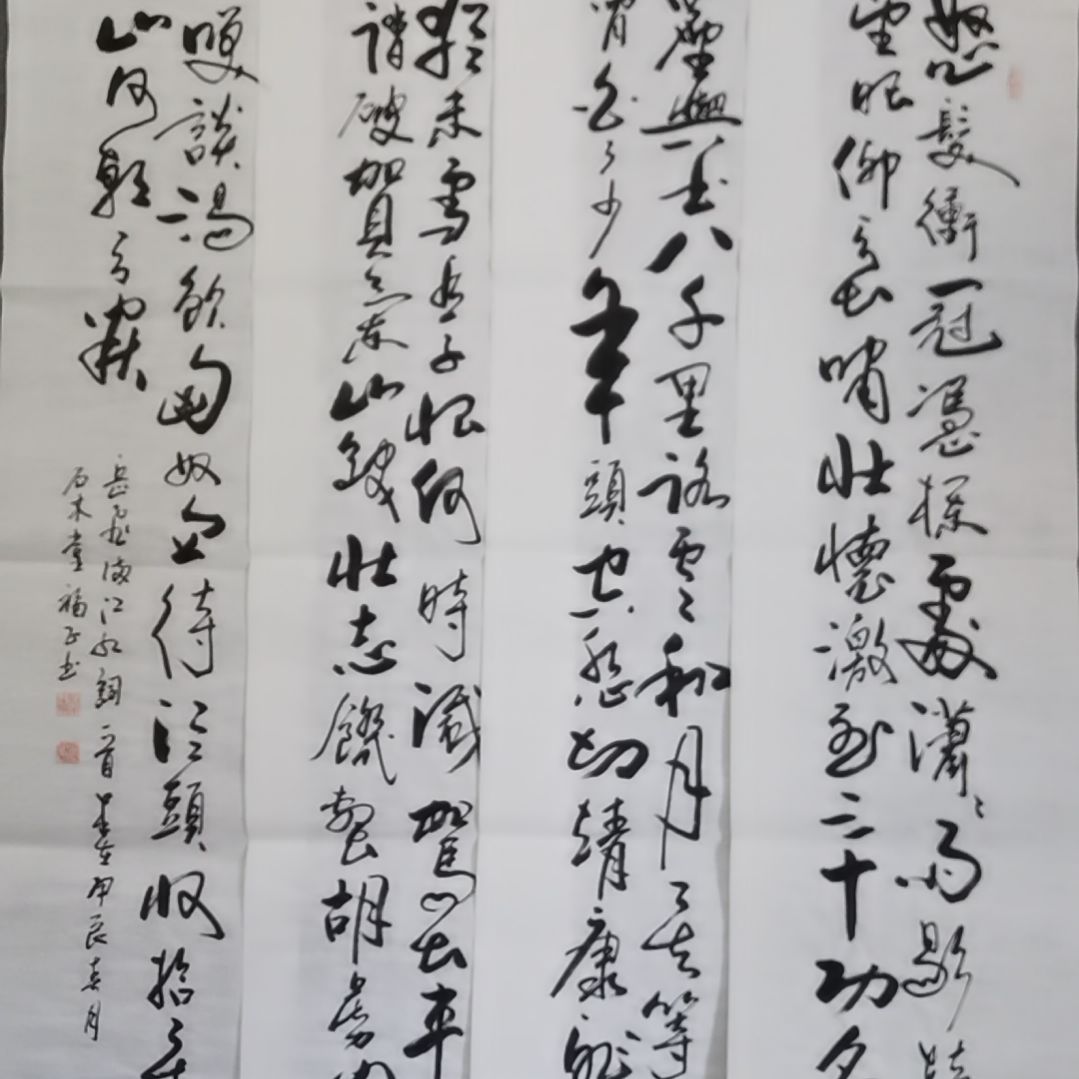 怒髮衝冠憑欄處瀟瀟雨歇
望眼仰天长嘯壯懷激烈三十功名
塵與土八千里路雲和月莫等
白了少年頭空悲切靖康恥
猶未雪臣子恨何時滅駕長車
踏破賀蘭山缺壯志饑餐胡虜肉
笑談渴飲匈奴血待從頭收拾舊
山河朝天闕
岳飛滿江紅詞一首 甲辰春月
石木堂福子書